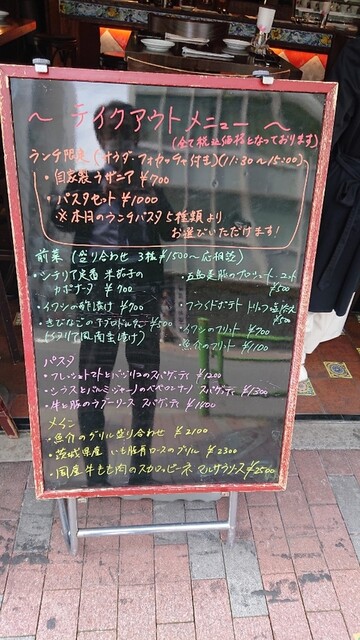 ～ テイクアウトメニュー ～
(全て税込価格となっております)
ランチ限定 (サラダ・フォカッチャ付き)(11:30～15:00)
・自家製ラザニア ¥700
・パスタセット ¥1000
※本日のランチパスタ5種類より
お選びいただけます!
前菜 (盛り合わせ 3種 ¥1500～応相談)
・シチリア定番 米茄子の
カポナータ ¥700
・イワシの酢漬け ¥700
・きびなごの ¥500
(イタリア風南蛮漬け)
・五島 豚のプロシュートコット
¥500
・フライドポテト トリュフ
¥500
・イワシのフリット ¥700
・魚介のフリット ¥1100
パスタ
・フレッシュトマトとバジリコのスパゲッティ ¥1200
・シラスとパルミジャーノのペペロンチーノ スパゲッティ ¥1300
・牛と豚のラグーソース スパゲッティ ¥1400
メイン
・魚介のグリル盛り合わせ ¥2100
・茨城県産 いも豚肩ロースのグリル ¥2300
・国産牛もも肉のスカロッピーネ マルサラソース ¥2500